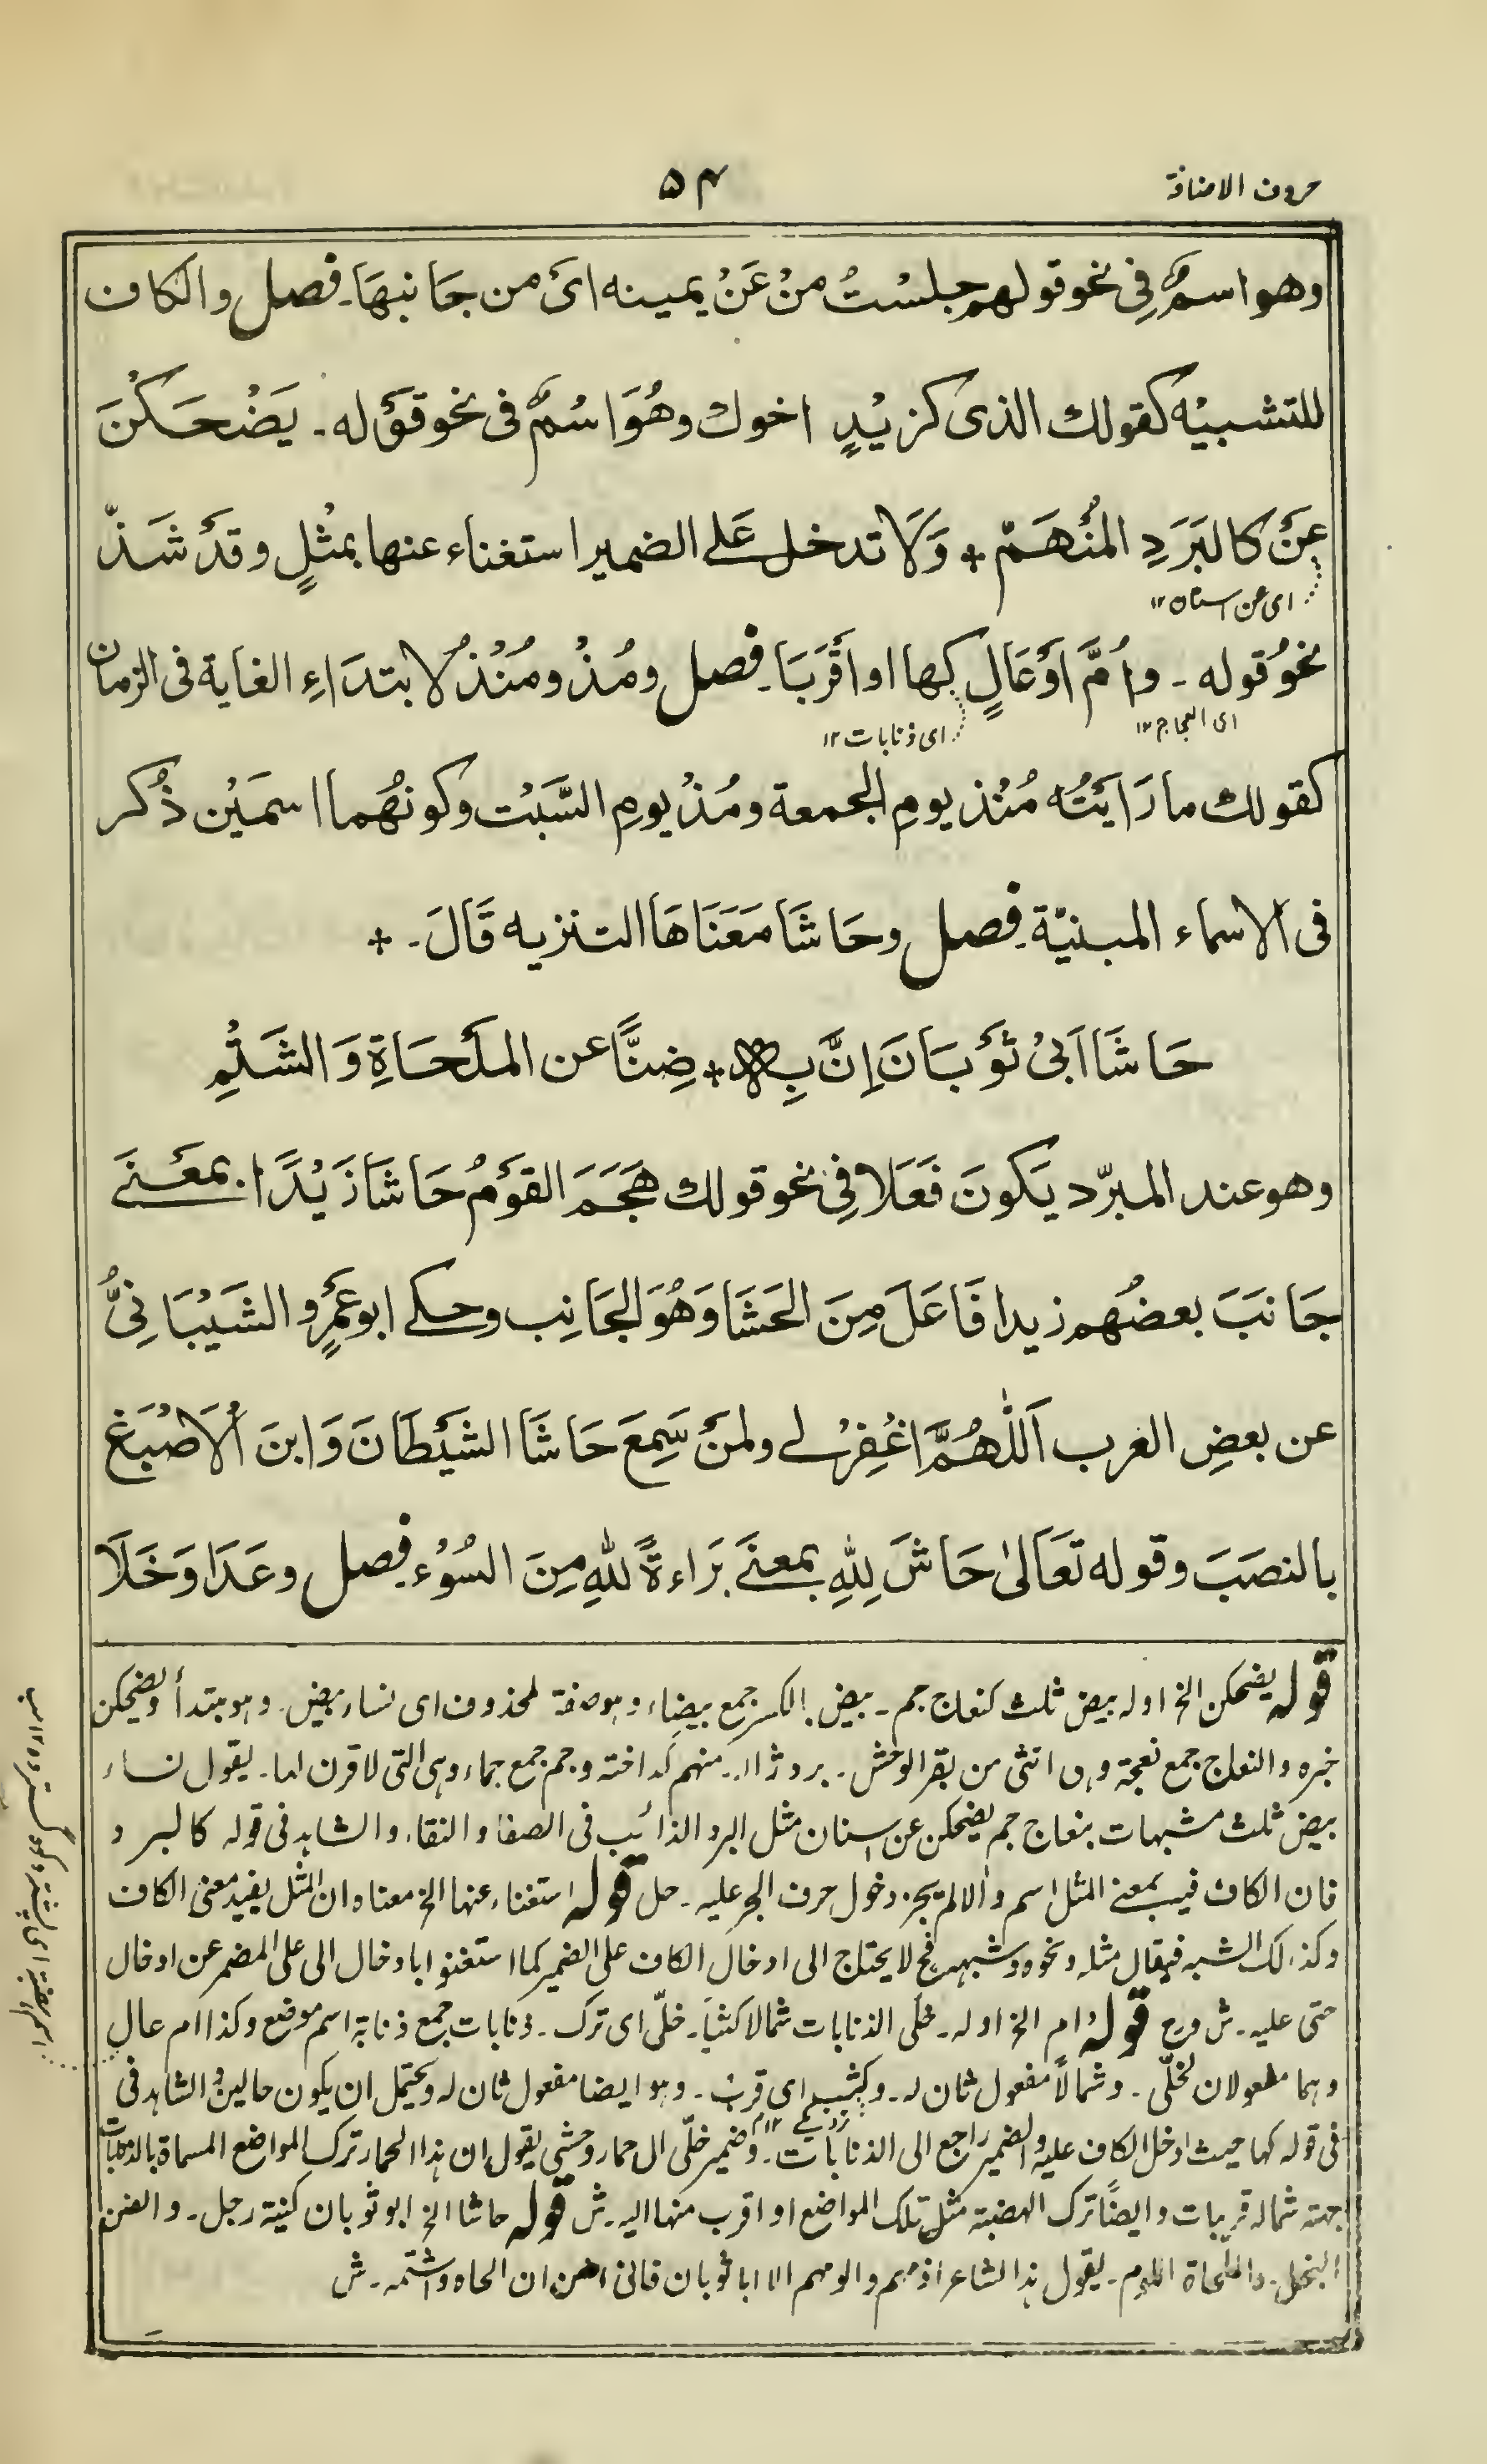 حروف الاضافة
۵۴
وهو اسمٌ فِي نحو قولهم جلسْتُ منْ عَنْ يمينه اىْ من جَانبهَا۔ فصل والكاف
للتشبيْه كقولك الذى كزيْدٍ اخوك وهُوَ اسْمٌ فى نحو قوْله ۔ يَضْحَكْنَ
عَنْ كالبَرَدِ المُنْهَمّ + وَلَا تدخل عَلى الضمير استغناء عنها بمثْلٍ وقدْ شَذّ
اى عن اسنان ۱۲
نحوُ قوله ۔ واُمَّ اَوْعَالٍ كها او اقْرَبَا۔ فصل ومُذْ ومُنْذُ لابتدَاءِ الغاية فى الزمان
اى العجاج ۱۲
اى ذنابات ۱۲
كقولك ما رَايْتُه مُنْذ يومِ الجمعة ومُذْ يومِ السَّبْت وكونهُما اسمَيْن ذُكر
فى الاسماء المبنيّة۔ فصل وحَاشَا مَعْنَاهَا التنزيه قَالَ ۔ +
حَاشَا اَبىْ ثَوْبَانَ اِنَّ بِهٖ + ضِنًّا عن الملْحَاةِ وَ الشَتْمِ
وهو عند المبرّد يَكونَ فَعَلا فِي نحو قولك هَجَمَ القوْمُ حَاشَا زَيْدًا بمعْنَے
جَانبَ بعضُهم زيدا فَاعَلَ مِنَ الحَشَا وَهُوَ الجَانِب وحكے ابو عَمْرٍو الشَيْبَانِيُّ
عن بعضِ العرب اَللّٰهُمَّ اغْفِرْ لے ولمنْ سَمِعَ حَاشَا الشيْطَانَ وَابنَ الْاَصْبَغِ
بالنصَبَ وقوله تعَالىٰ حَاشَ لِلّٰهِ بمعنَے بَرَاءةً لله مِنَ السُوْء۔ فصل وعَدَا وَخَلَا
قوله يضحكن الخ اوله بيض ثلث كنعاج جم ۔ بيض بالكسر جمع بيضاء وهو صفة لمحذوف اى نساء بيض ۔ وهو مبتدأ ويضحكن
خبره والنعاج جمع نعجة وهى انثى من بقر الوحش ۔ برد ژاله منهم گداخته وجم جمع جماء وهى التى لا قرن لها ۔ يقول نساء
بيض ثلث مشبهات بنعاج جم يضحكن عن اسنان مثل البرد الذائب فى الصفا والنقاء والشاهد فى قوله كالبرد
فان الكاف فيه بمعنے المثل اسم والا لم يجز دخول حرف الجر عليه ۔ حل قوله استغناء عنها الخ معناه ان المثل يفيد معنى الكاف
وكذلك الشبه فيقال مثله ونحوه وشبهه فح لا يحتاج الى ادخال الكاف على الضمير كما استغنوا بادخال الى على المضمر عن ادخال
حتى عليه ۔ ش ورع قوله ام الخ اوله ۔ خلّى الذنابات شمالا كثبا ۔ خلّى اى ترك ۔ ذنابات جمع ذنابة اسم موضع وكذا ام عال
وهما مفعولان لخلّى ۔ وشمالاً مفعول ثان له ۔ وكثب اى قرب ۔ وهو ايضا مفعول ثان له ويحتمل ان يكون حالين والشاهد فى
نزديكے ۱۲ م
فى قوله كها حيث ادخل الكاف عليه والضمير راجع الى الذنابات ۔ وضمير خلّى الى حمار وحشى يقول ان هذا الحمار ترك المواضع المسماة بالذنابات
جهته شماله قريبات وايضاً ترك الهضبة مثل تلك المواضع او اقرب منها اليه ۔ ش قوله حاشا الخ ابو ثوبان كنية رجل ۔ والضن
البخل ۔ والملحاة اللوم ۔ يقول هذا الشاعر اذمهم والومهم الا ابا ثوبان فانى اضن ان الحاه واشتمه ۔ ش